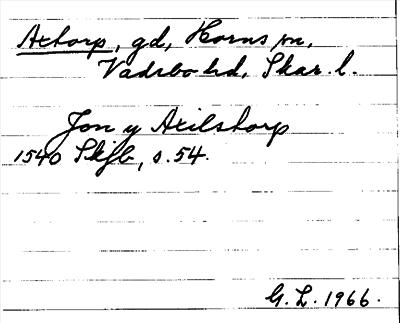 Axtorp, gd, Horns sn,
Vadsbo hd, Skar. l.
Jon y Axilstorp
1540 Skjb, s. 54.
G. L. 1966.